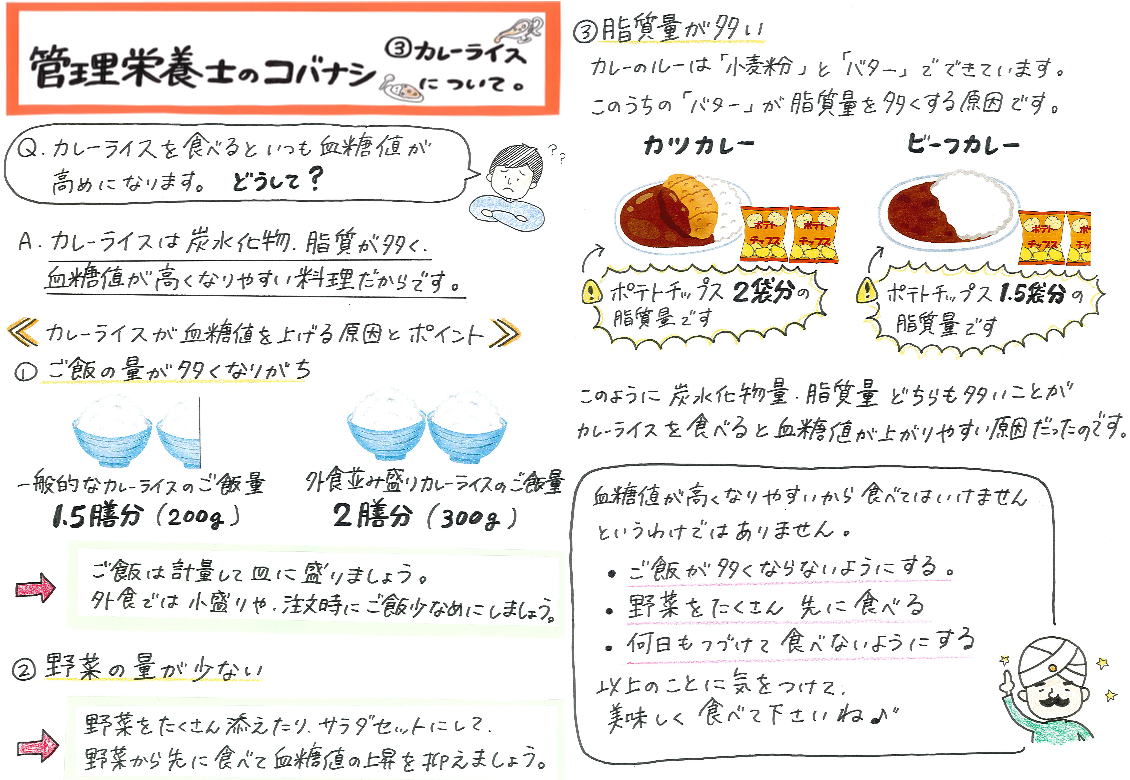 管理栄養士のコバナシ
③カレーライス
について。
Q.カレーライスを食べるといつも血糖値が
高めになります。 どうして?
??
A.カレーライスは炭水化物、脂質が多く、
血糖値が高くなりやすい料理だからです。
≪カレーライスが血糖値を上げる原因とポイント≫
①ご飯の量が多くなりがち
一般的なカレーライスのご飯量
1.5膳分(200g)
外食並み盛りカレーライスのご飯量
2膳分(300g)
ご飯は計量して皿に盛りましょう。
外食では小盛りや、注文時にご飯少なめにしましょう。
②野菜の量が少ない
野菜をたくさん添えたり、サラダセットにして、
野菜から先に食べて血糖値の上昇を抑えましょう。
③脂質量が多い
カレーのルーは「小麦粉」と「バター」でできています。
このうちの「バター」が脂質量を多くする原因です。
カツカレー
ポテト
チップス
ポテト
チップス
ポテトチップス2袋分の
脂質量です
ビーフカレー
ポテト
チップス
ポテトチップス1.5袋分の
脂質量です
このように炭水化物量、脂質量どちらも多いことが
カレーライスを食べると血糖値が上がりやすい原因だったのです。
血糖値が高くなりやすいから食べてはいけません
というわけではありません。
・ご飯が多くならないようにする。
・野菜をたくさん 先に食べる
・何日もつづけて食べないようにする
以上のことに気をつけて、
美味しく食べて下さいね♪"